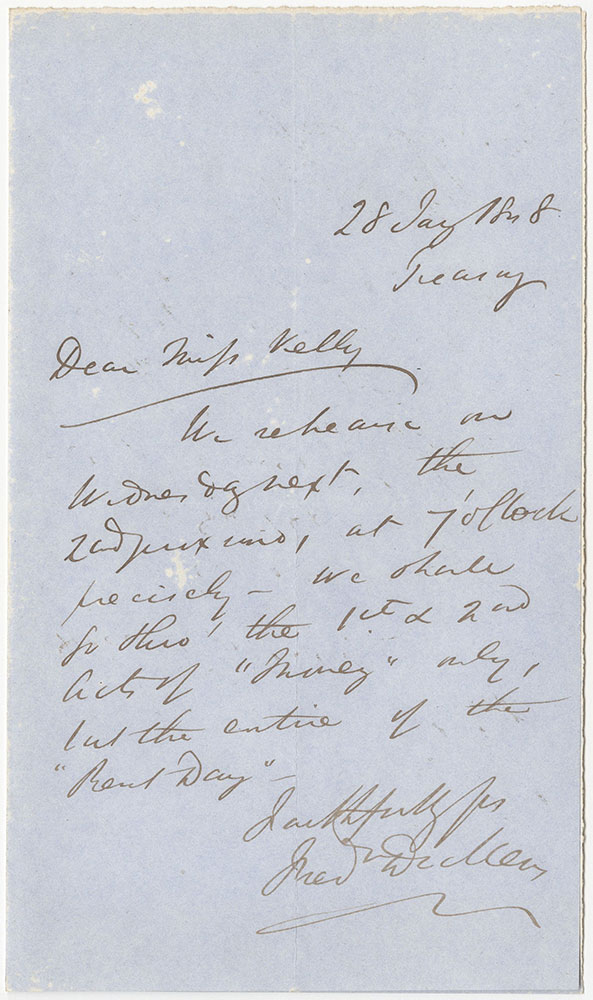 28 Jany 1848
Treasury
Dear Miss Kelly
We rehearse on
Wednesday next, the
2nd proximo, at 7 o'Clock
precisely — We shall
go thro' the 1st & 2nd
Acts of "Money" only,
but the entire of the
"Rent Day" —
Faithfully yrs
Fredk Dickens